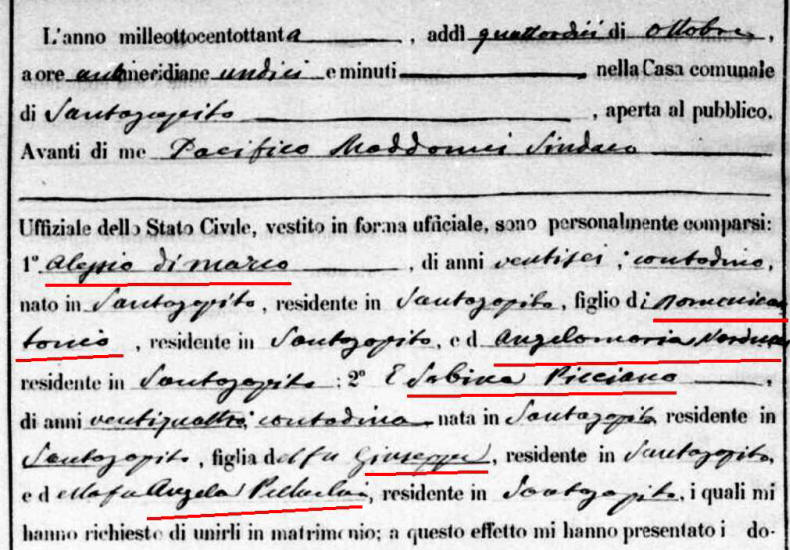 L'anno milleottocentottanta , addì quattordici di ottobre,
a ore antimeridiane undici e minuti nella Casa comunale
di Santogopito , aperta al pubblico.
Avanti di me Pacifico Sindaco
Uffiziale dello Stato Civile, vestito in forma ufficiale, sono personalmente comparsi:
1º Alessio di marco , di anni ventisei ; contadino,
nato in Santogopito, residente in Santogopito, figlio di Domenican
tonio , residente in Santogopito, e d Angelomaria
residente in Santogopito ; 2º E Sabina Picciano ,
di anni ventiquattro, contadina nata in Santogopito residente in
Santogopito , figlia del fu Giuseppe , residente in Santogopito,
e d ella fu Angela , residente in Santogopito, i quali mi
hanno richiesto di unirli in matrimonio; a questo effetto mi hanno presentato i do-